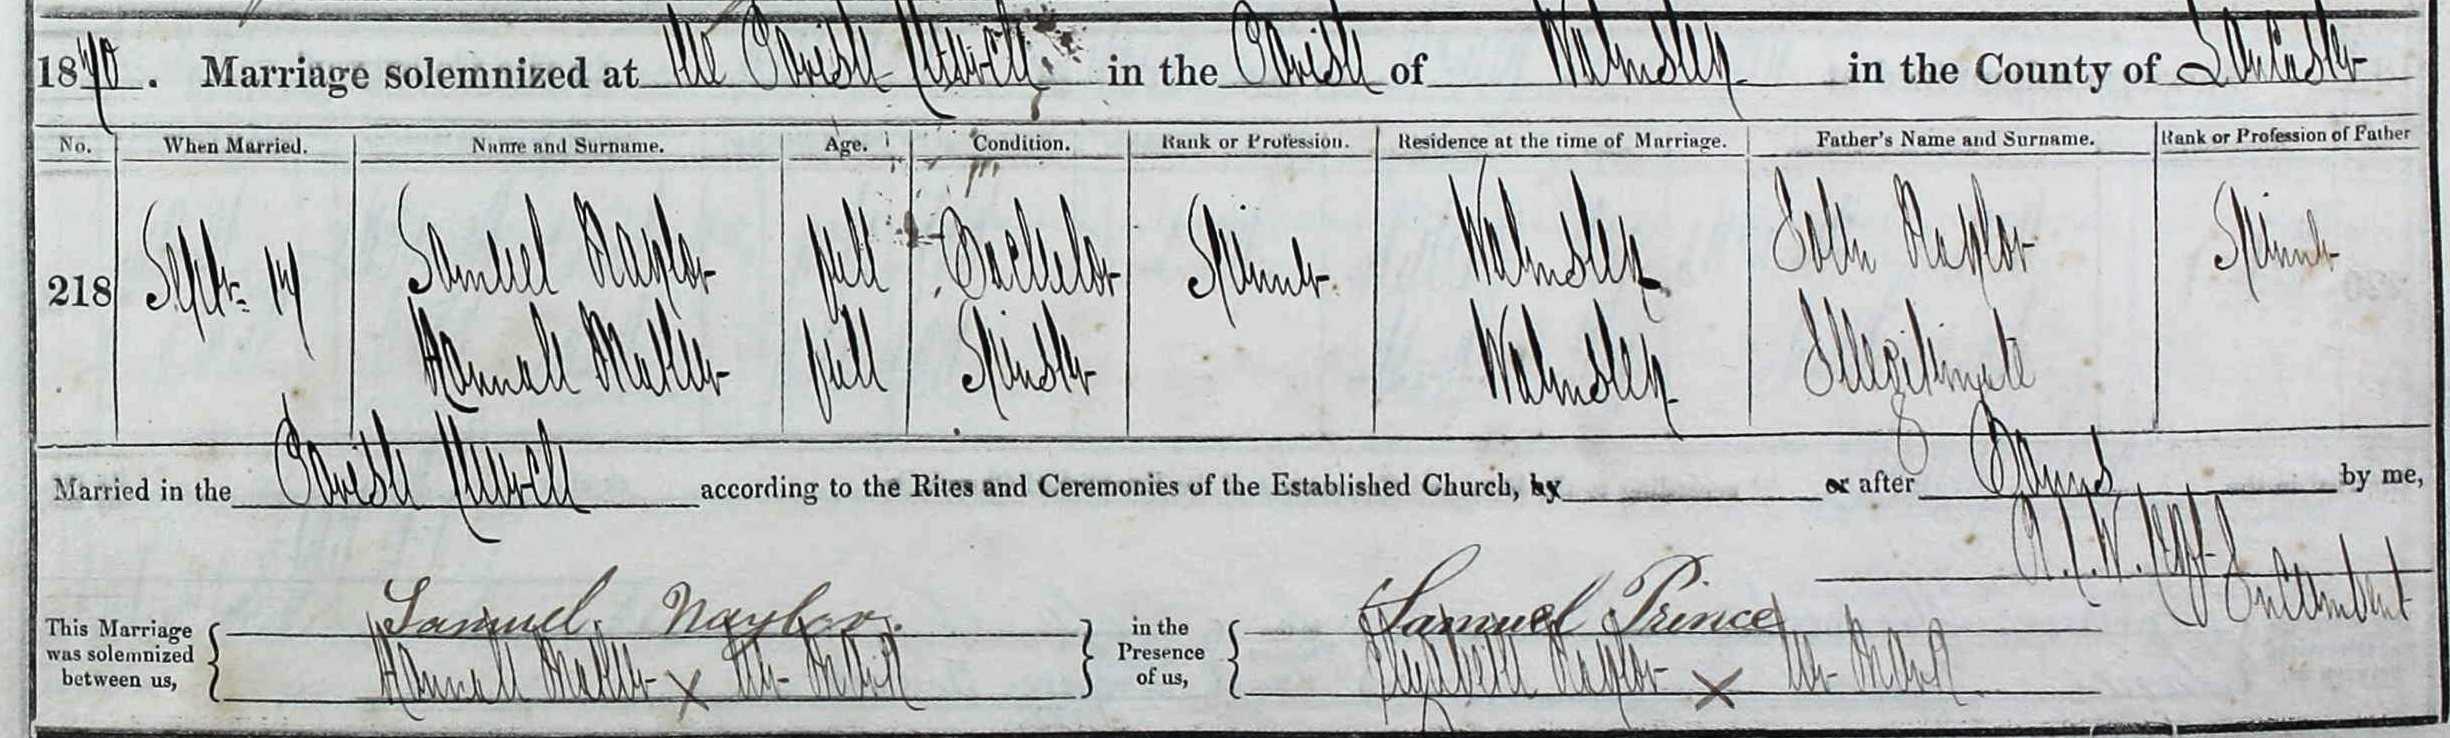 1870. Marriage solemnized at the Parish Church in the Parish of Walmsley in the County of Lancaster
No. When Married. Name and Surname. Age. Condition. Rank or Profession. Residence at the time of Marriage. Father's Name and Surname. Rank or Profession of Father
218 Septr. 14 Samuel Naylor full Bachelor Spinner Walmsley John Naylor Spinner
Hannah full Spinster Walmsley Illegitimate
Married in the Parish Church according to the Rites and Ceremonies of the Established Church, by or after Banns by me,
Incumbent
This Marriage was solemnized between us,
Samuel Naylor.
Hannah X her Mark
in the Presence of us,
Samuel Prince
Elizabeth Naylor X her Mark